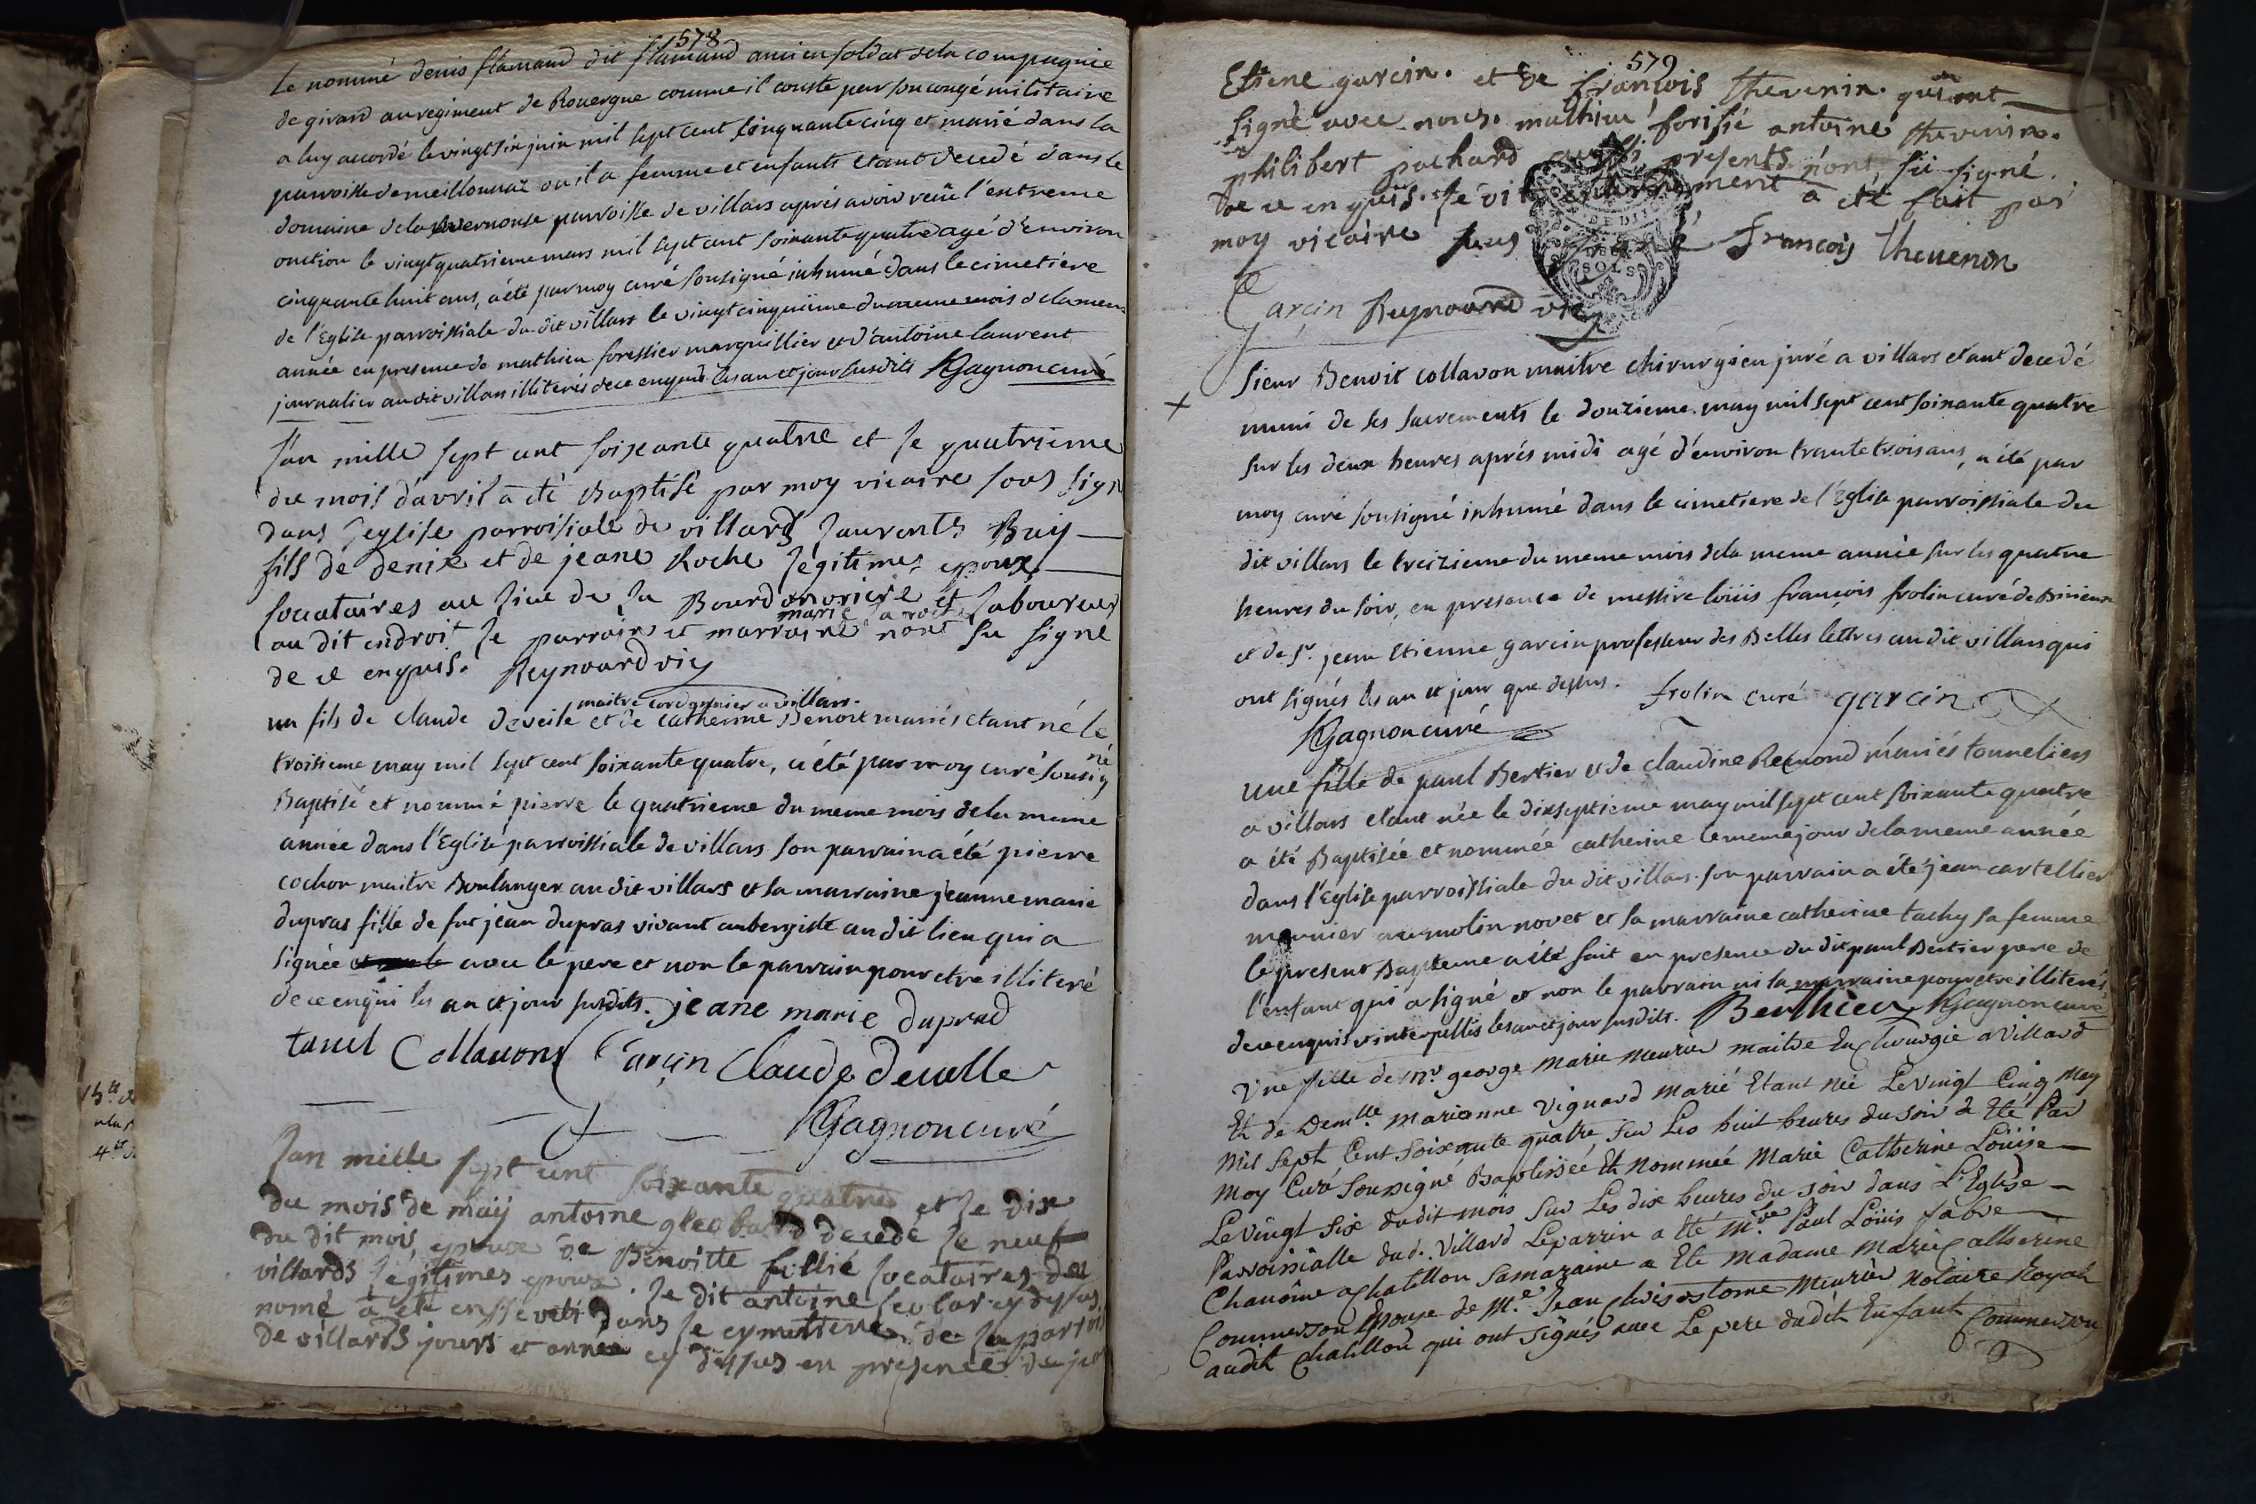 578
Le nommé denis flamand dit flamand ancien soldat de la compagnie
de girard au regiment de Rouergue comme il conste par son congé militaire
a luy accordé le vingt six juin mil sept cent cinquante cinq et marié dans la
parroisse de meillonnaz ou il a femme et enfants etant decedé dans le
domaine de la parroisse de villars aprés avoir reçu l'extreme
onction le vingt quatrieme mars mil sept cent soixante quatre agé d'environ
cinquante huit ans, a été par moy curé sousigné inhumé dans le cimetiere
de l'Eglise parroissiale du dit villars le vingt cinquiême du meme mois de la meme
année en presence de mathieu forestier marguillier et d'antoine laurent
journalier au dit villars illiterés de ce enquis les an et jour susdits Gagnon curé
l'an mille sept cent soixante quatre et le quatrieme
du mois d'avril a été Baptisé par moy vicaire sous sign
dans l'eglise parroisiale de villards laurents Buy
fils de denix et de jeane Roche légitimes epoux
locataires au lieu de la et laboureur
au dit endroit le parrain et marraine n'ont su signé
marie la roche
de ce enquis. Reynouard vic
maitre cordonnier a villars.
un fils de claude deveile et de catherine Benoit mariés etant né le
troisieme may mil sept cent soixante quatre, a été par moy curé sousigné
Baptisé et nommé pierre le quatrieme du meme mois de la meme
année dans l'Eglise parroissiale de villars son parrain a été pierre
cochon maitre Boulanger au dit villars et la marraine jeanne marie
dupras fille de fut jean dupras vivant aubergiste au dit lieu qui a
signée avec le pere et non le parrain pour etre illiteré
de ce enquis les an et jour susdits. jeane marie duprad
tanel Collavons Garçin Claude Develle
Gagnon curé
l'an mille sept cent soixante quatre et le dix
du mois de maij antoine decedé le neuf
du dit mois epoux de Benoitte fillié locataires de
villards légitimes epoux. le dit antoine cy dessus
nomé a été enssevéli dans le cymettiere de la parrois
de villards jours et année cy dessus en presence de je
579
Etiene garcin. et de françois thevenin. qui ont
signé avec nous. mathieu forissié antoine thevenin.
philibert pochard aussi presents n'ont su signé.
de ce enquis. le vit a été fait par
moy vicaire sous signé françois thevenon
DEUX
SOLS
Garçin Reynouard vic
Sieur Benoit collavon maitre chirurgien juré a villars etant decedé
muni de ses sacrements le douzieme may mil sept cent soixante quatre
sur les deux heures aprés midi agé d'environ trante trois ans, a été par
moy curé sousigné inhumé dans le cimetiere de l'Eglise parroissiale du
dit villars le treizieme du meme mois de la meme année sur les quatre
heures du soir, en presance de messire loüis françois frolin curé de Birieux
et de sr. jean Etienne garcin professeur des Belles lettres au dit villars qui
ont signés les an et jour que dessus. frolin curé garcin
Gagnon curé
une fille de paul Bertier et de claudine Remond mariés tonneliers
a villars etant née le dixseptieme may mil sept cent soixante quatre
a été Baptisée et nommée catherine le meme jour de la meme année
dans l'Eglise parroissiale du dit villars. son parrain a été jean cartellier
meunier au molin novet et sa marraine catherine tachy sa femme
le present Bapteme a été fait en presence du dit paul Bertier pere de
l'enfant qui a signé et non le parrain ni la marraine pour etre illiterés
de ce enquis et interpellés les an et jour susdits. Berthier Gagnon curé
Une fille de Mr. george Marie Meurier maitre En chirurgie a Villard
Et de Demlle. Marianne Viguard Marié Etant Née Le vingt Cinq May
Mil Sept Cent soixante quatre sur Les huit heures du soir a Eté Par
Moy Curé Sousigné Baptissée Et Nommée Marie Catherine Loüise
Le vingt Six dudit mois sur Les dix heures du soir dans L'Eglise
Parroissialle dud. Villard Le parrin a Eté Mre Paul Loüis fabre
Chanôine a Chatillon Sa maraine a Eté Madame Marie Catherine
Commerson Epouse de Me. Jean Chrisostome Meurier Notaire Royal
audit Chatillon qui ont signés avec Le pere dudit Enfant Commerson